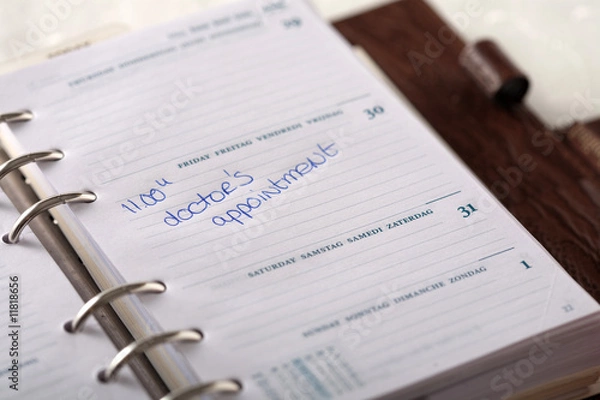 29
THURSDAY
30
FRIDAY FREITAG VENDREDI VRIJDAG
11.00u doctor's
appointment
31
SATURDAY SAMSTAG SAMEDI ZATERDAG
1
SUNDAY SONNTAG DIMANCHE ZONDAG
Adobe Stock | #11818656